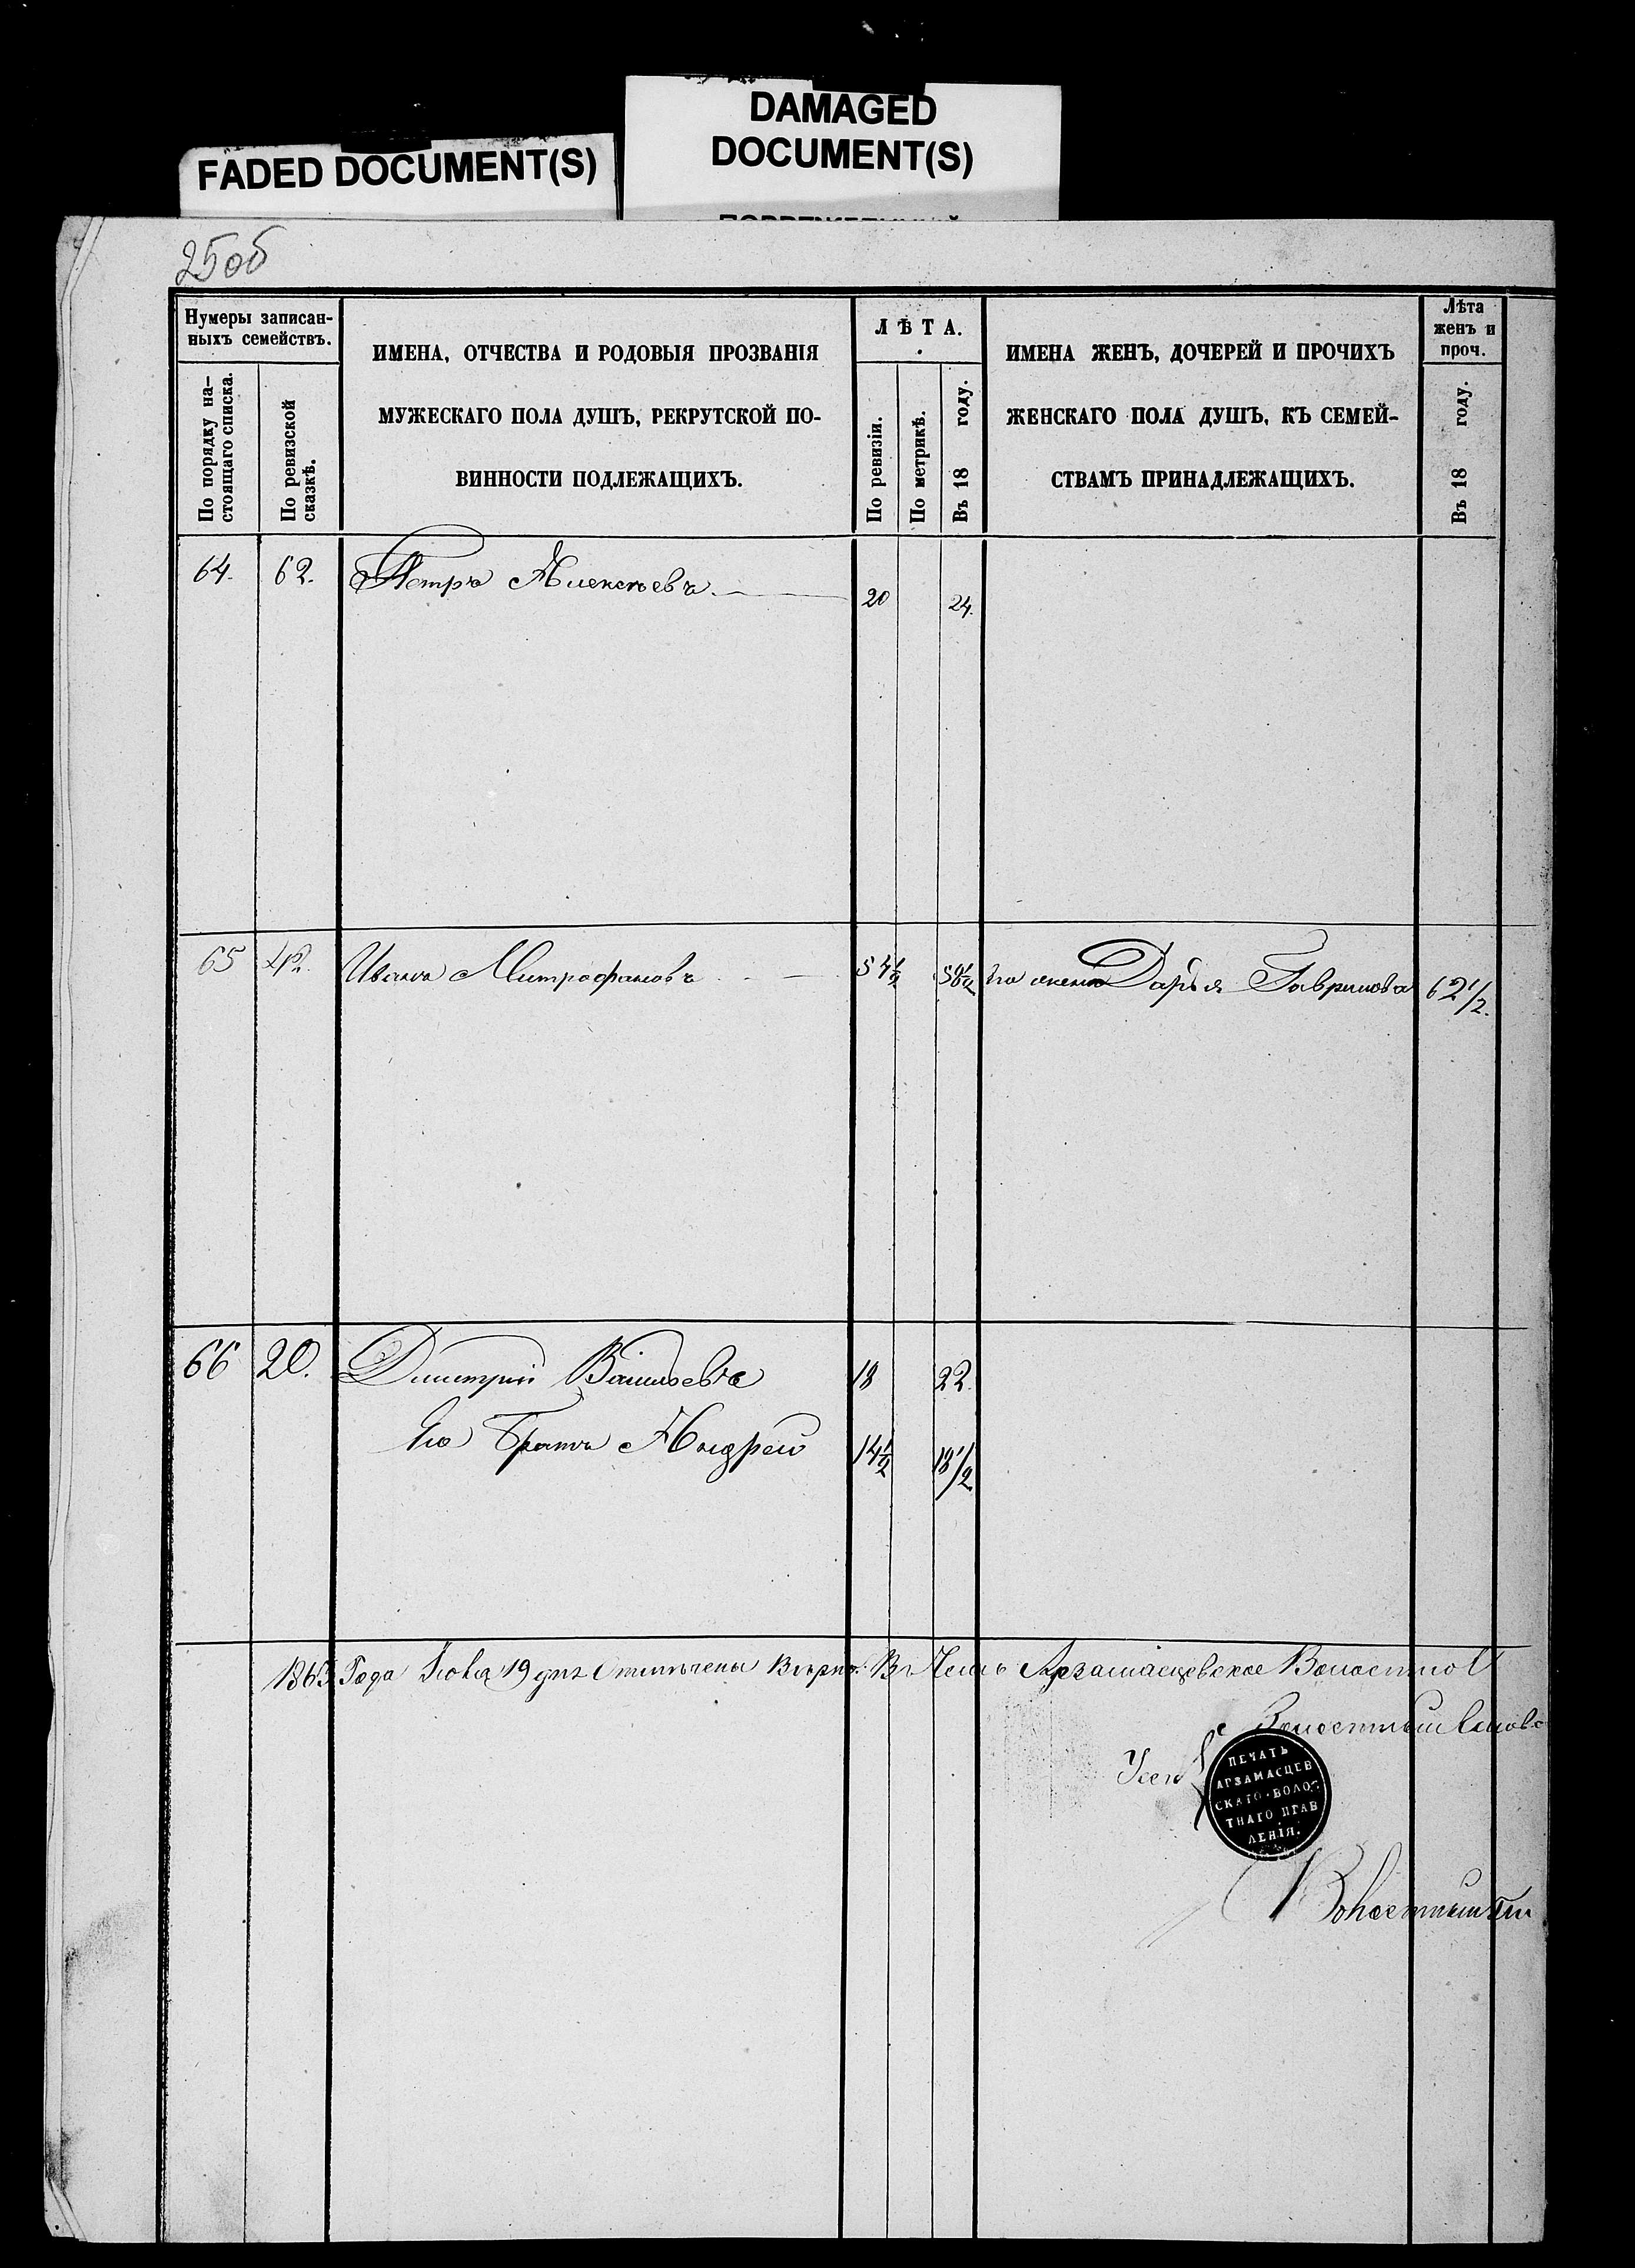 DAMAGED
DOCUMENT(S)
FADED DOCUMENT(S)
25об
Нумеры записан-
ныхъ семействъ.
По порядку на-
стоящаго списка.
По ревизской
сказкѣ.
ИМЕНА, ОТЧЕСТВА И РОДОВЫЯ ПРОЗВАНІЯ
МУЖЕСКАГО ПОЛА ДУШЪ, РЕКРУТСКОЙ ПО-
ВИННОСТИ ПОДЛЕЖАЩИХЪ.
ЛѢТА.
По ревизіи.
По метрикѣ.
Въ 18 году.
ИМЕНА ЖЕНЪ, ДОЧЕРЕЙ И ПРОЧИХЪ
ЖЕНСКАГО ПОЛА ДУШЪ, КЪ СЕМЕЙ-
СТВАМЪ ПРИНАДЛЕЖАЩИХЪ.
Лѣта
женъ и
проч.
Въ 18 году.
64. 62. Петръ Алексѣевъ 20 24.
65 Иванъ Митрофановъ 54½ 58½ Его жена Дарья Гаврилова 62½.
66 20. Дмитрий Васильевъ 18 22.
Его Братъ Андрей 14½ 18½
Года Июля 19 дня Отмѣчены Вѣрно. Въ Чемъ Арзамасцевское Волостное
Волостный
ПЕЧАТЬ
АРЗАМАСЦЕВ
СКАГО ВОЛОС
ТНАГО ПРАВ
ЛЕНІЯ.
Волостный